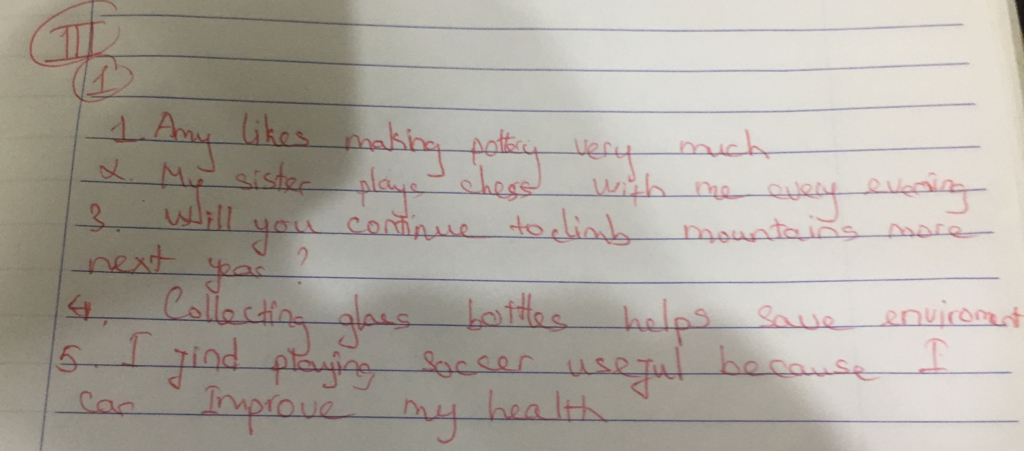 III
1
1 Amy likes making pottery very much
2. My sister plays chess with me every evening
3. Will you continue to climb mountains more
next year?
4. Collecting glass bottles helps save enviroment
5. I find playing soccer useful because I
can Improve my health